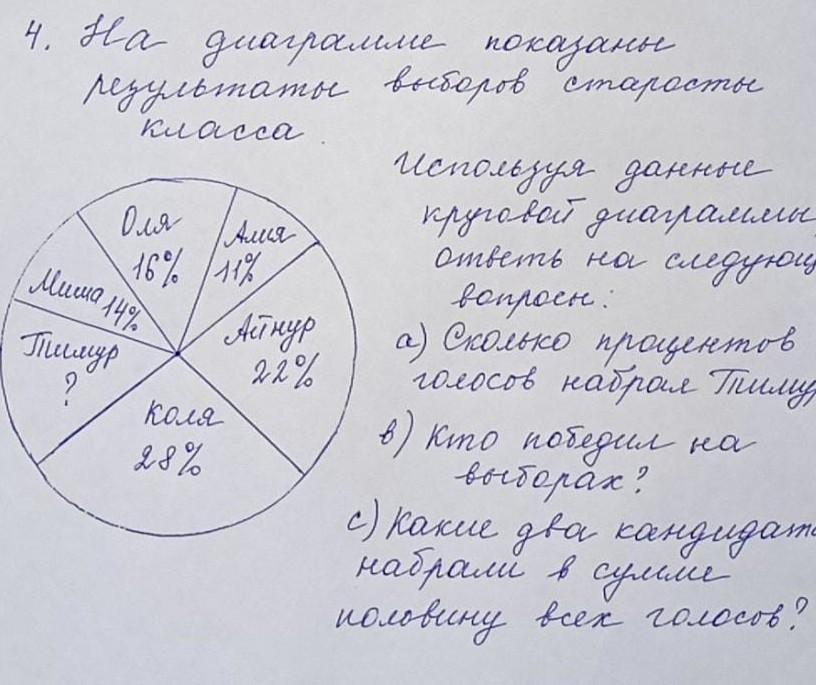 4. На диаграмме показаны
результаты выборов старосты
класса
Используя данные
круговой диаграммы,
ответь на следующ
вопросы:
Оля
16%
Алия
11%
Миша 14%
Айнур
22%
Тимур
?
Коля
28%
а) Сколько процентов
голосов набрал Тимур
в) Кто победил на
выборах?
с) Какие два кандидат
набрали в сумме
половину всех голосов?